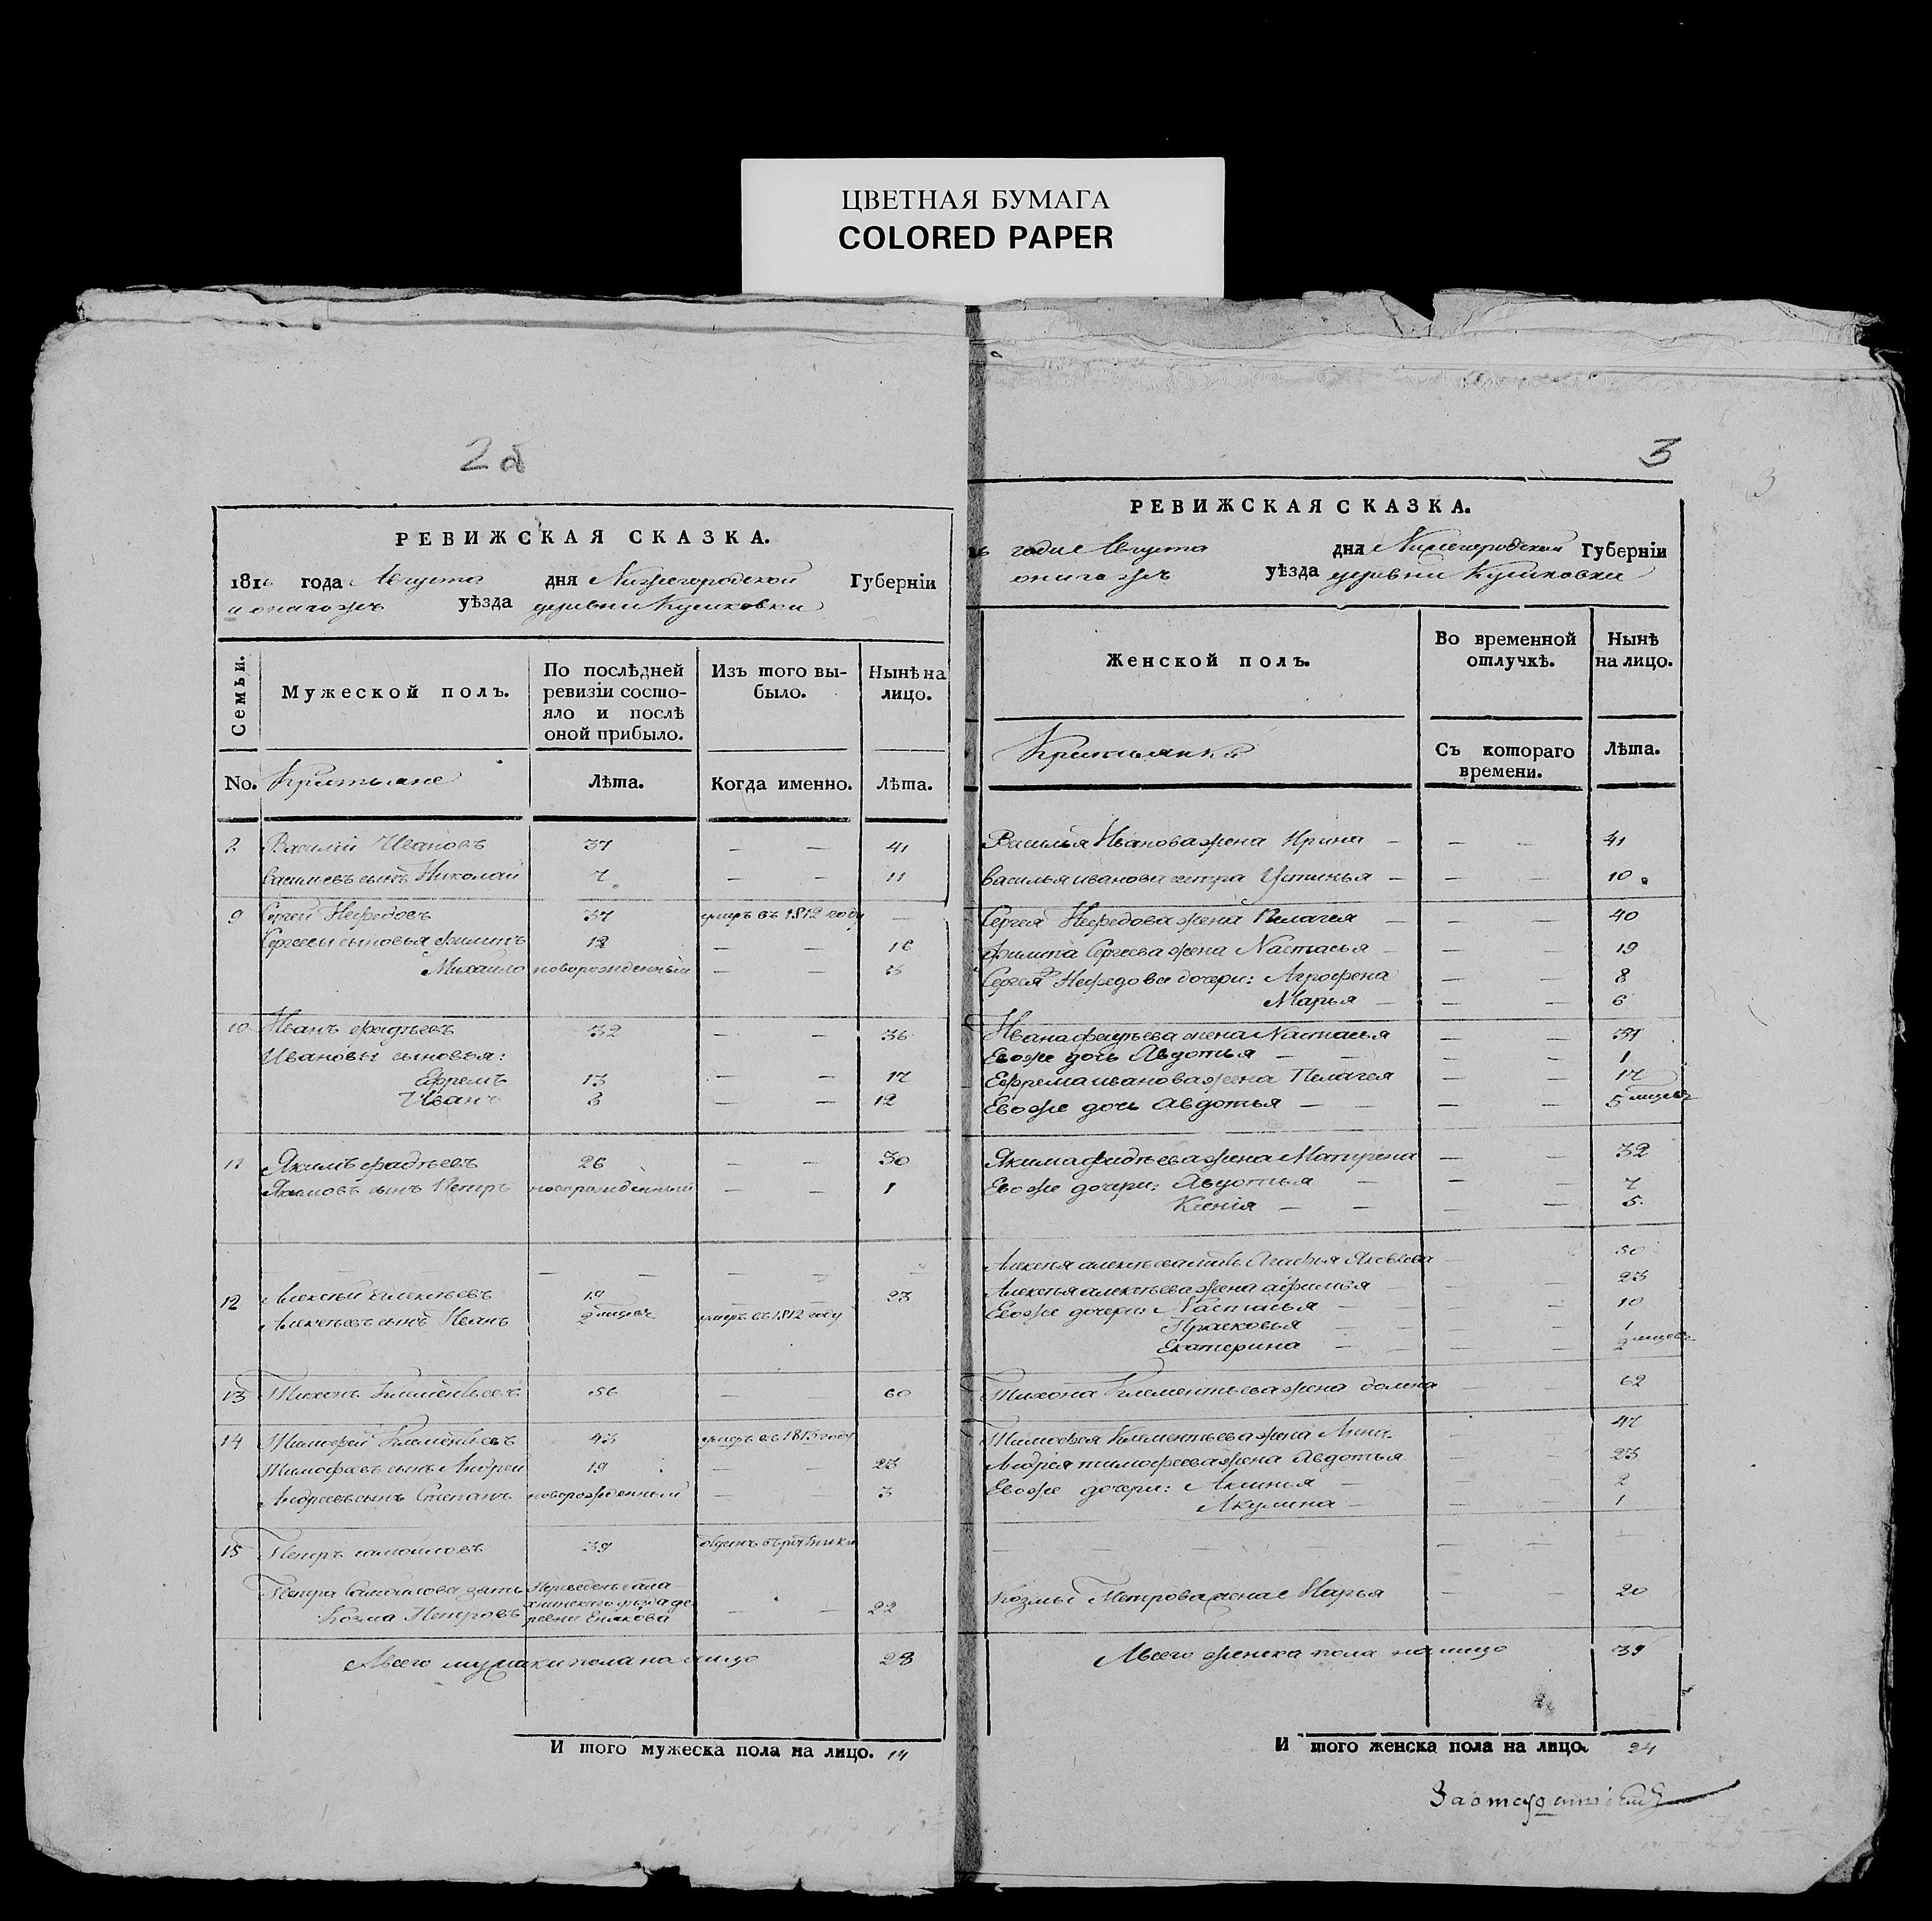 ЦВЕТНАЯ БУМАГА
COLORED PAPER
2 об
РЕВИЖСКАЯ СКАЗКА.
1816 года Августа дня Нижегородской Губерніи
и оного жъ уѣзда деревни Куликовки
Семьи.
Мужеской полъ.
По послѣдней ревизіи состо-
яло и послѣ
оной прибыло.
Изъ того вы-
было.
Нынѣ на
лицо.
No. Крестьяне
Лѣта.
Когда именно.
Лѣта.
Василий Ивановъ 37 — — 41
васильевъ сынъ Николай 7 — — 11
9 Сергей Нефедовъ 37 умеръ въ 1812 году —
Сергеевы сыновья филипъ 12 — — 16
Михайло новорожденный — — 3
10 Иванъ фадѣевъ 32 — — 36
Ивановы сыновья:
Ефремъ 13 — — 17
Иванъ — — 12
11 Якимъ фадѣевъ 26 — — 30
Якимовъ сынъ Петръ новорожденный — — 1
12 Алексѣй алексѣевъ 19 — — 23
Алексѣевъ сынъ Иванъ 2 мѣсецовъ умеръ въ 1812 году
13 Тихонъ Климентьевъ 56 — 60
14 Тимофей Климентьевъ 43 умеръ въ 1813 году
Тимофеевъ сынъ Андрей 19 — — 23
Андреевъ сынъ Степанъ новорожденный — — 3
15 Петръ самойловъ 39 отданъ въ ратники
Петра Самойлова зять Переведенъ
Козма Петровъ уѣзда де
ревни — — 22
Всего мужска пола на лицо 28
И того мужеска пола на лицо. 14
3
3
РЕВИЖСКАЯ СКАЗКА.
года Августа дня Нижегородской Губерніи
оного жъ уѣзда деревни Куликовки
Женской полъ.
Во временной
отлучкѣ.
Нынѣ
на лицо.
Крестьянки
Съ котораго
времени.
Лѣта.
Василья Иванова жена Ирина — — — 41
василья иванова сестра Устинья — — — 10
Сергея Нефедова жена Пелагея — — — 40
филипа Сергеева жена Настасья — — — 19
Сергея Нефедова дочери: Агрофена — — 8
Марья — — — 6
Ивана фадѣева жена Настасья — — 37
Ево же дочь Авдотья — — — 1
Ефрема иванова жена Пелагея — — 17
Ево же дочь авдотья — — — — 5 мѣсецовъ
Якима фадѣева жена Матрена — — 32
Ево же дочери: Авдотья — — — 7
Ксения — — — — 5.
Алексѣя алексѣева мать Агафья Яковлева — — 50
Алексѣя алексѣева жена афимья — — — 23
Ево же дочери: Настасья — — — 10
Прасковья — — — 1
Екатерина — — — — 2 мѣсецовъ
Тихона Климентьева жена домна — — 62
Тимофея Климентьева жена Анна — — 47
Андрея тимофеева жена Авдотья — — 23
Ево же дочери: Аксинья — — — 2
Акулина — — — 1
Козмы Петрова жена Марья — — 20
Всего женска пола на лицо 39
И того женска пола на лицо. 24